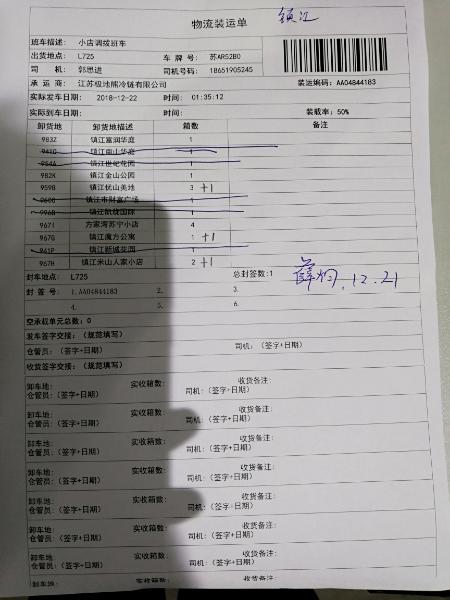 物流装运单 镇江
班车描述： 小店调拨班车
出货地点： L725 车 牌 号： 苏AR52B0
司 机： 郭思进 司机号码： 18651905245
承 运 商： 江苏极地熊冷链有限公司 装运编码：AA04844183
实际发车日期： 2018-12-22 时间： 01:35:12
实际到车日期： 时间： 装载率：50%
卸货地 卸货地描述 箱数 备注
983Z 镇江富润华庭 1
941G 镇江南山华庭 1
954A 镇江世纪花园 1
982K 镇江金山公园 1
959B 镇江优山美地 3 +1
960G 镇江市财富广场 1
996B 镇江凯旋国际 1
967I 方家湾苏宁小店 4
967G 镇江魔方公寓 1 +1
941P 镇江新城花园 1
967H 镇江米山人家小店 2 +1
封车地点： L725 总封签数:1
12.21
封 签 号： 1.AA04844183 2. 3.
4. 5. 6.
空承载单元总数：0
发车签字交接：（规范填写）
仓管员：（签字+日期） 司机：（签字+日期）
收货签字交接：（规范填写）
卸车地： 实收箱数： 收货备注：
仓管员：（签字+日期） 司机：（签字+日期）
卸车地： 实收箱数： 收货备注：
仓管员：（签字+日期） 司机：（签字+日期）
卸车地： 实收箱数： 收货备注：
仓管员：（签字+日期） 司机：（签字+日期）
卸车地： 实收箱数： 收货备注：
仓管员：（签字+日期） 司机：（签字+日期）
卸车地： 实收箱数： 收货备注：
仓管员：（签字+日期） 司机：（签字+日期）
卸车地： 实收箱数： 收货备注：
仓管员：（签字+日期） 司机：（签字+日期）
卸车地： 实收箱数： 收货备注：